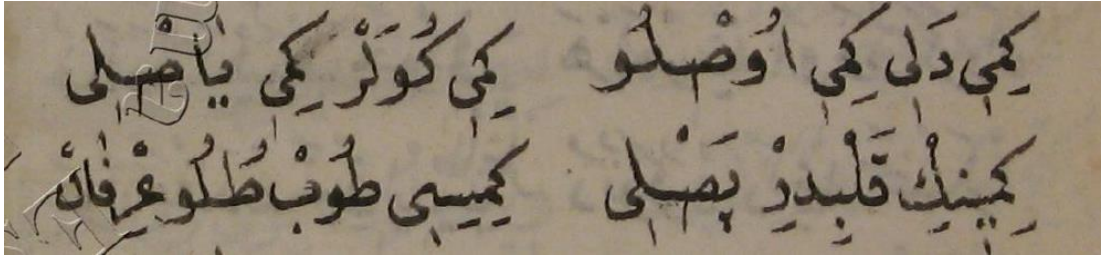 كِمِى دَلِى كِمِى اُوصْلُو كِمِى كُولَرْ كِمِى يَاصْلِى
كِمِينِكْ قَلْبِدِرْ پَصْلِى كِمِيسِى طُوبْ طُلُو عِرْفَانْ